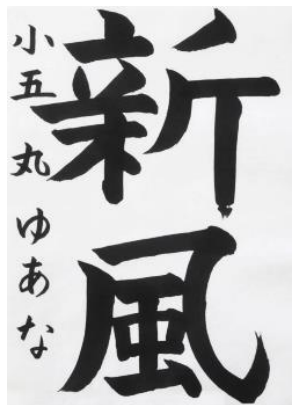 新風
小五 丸 ゆあな